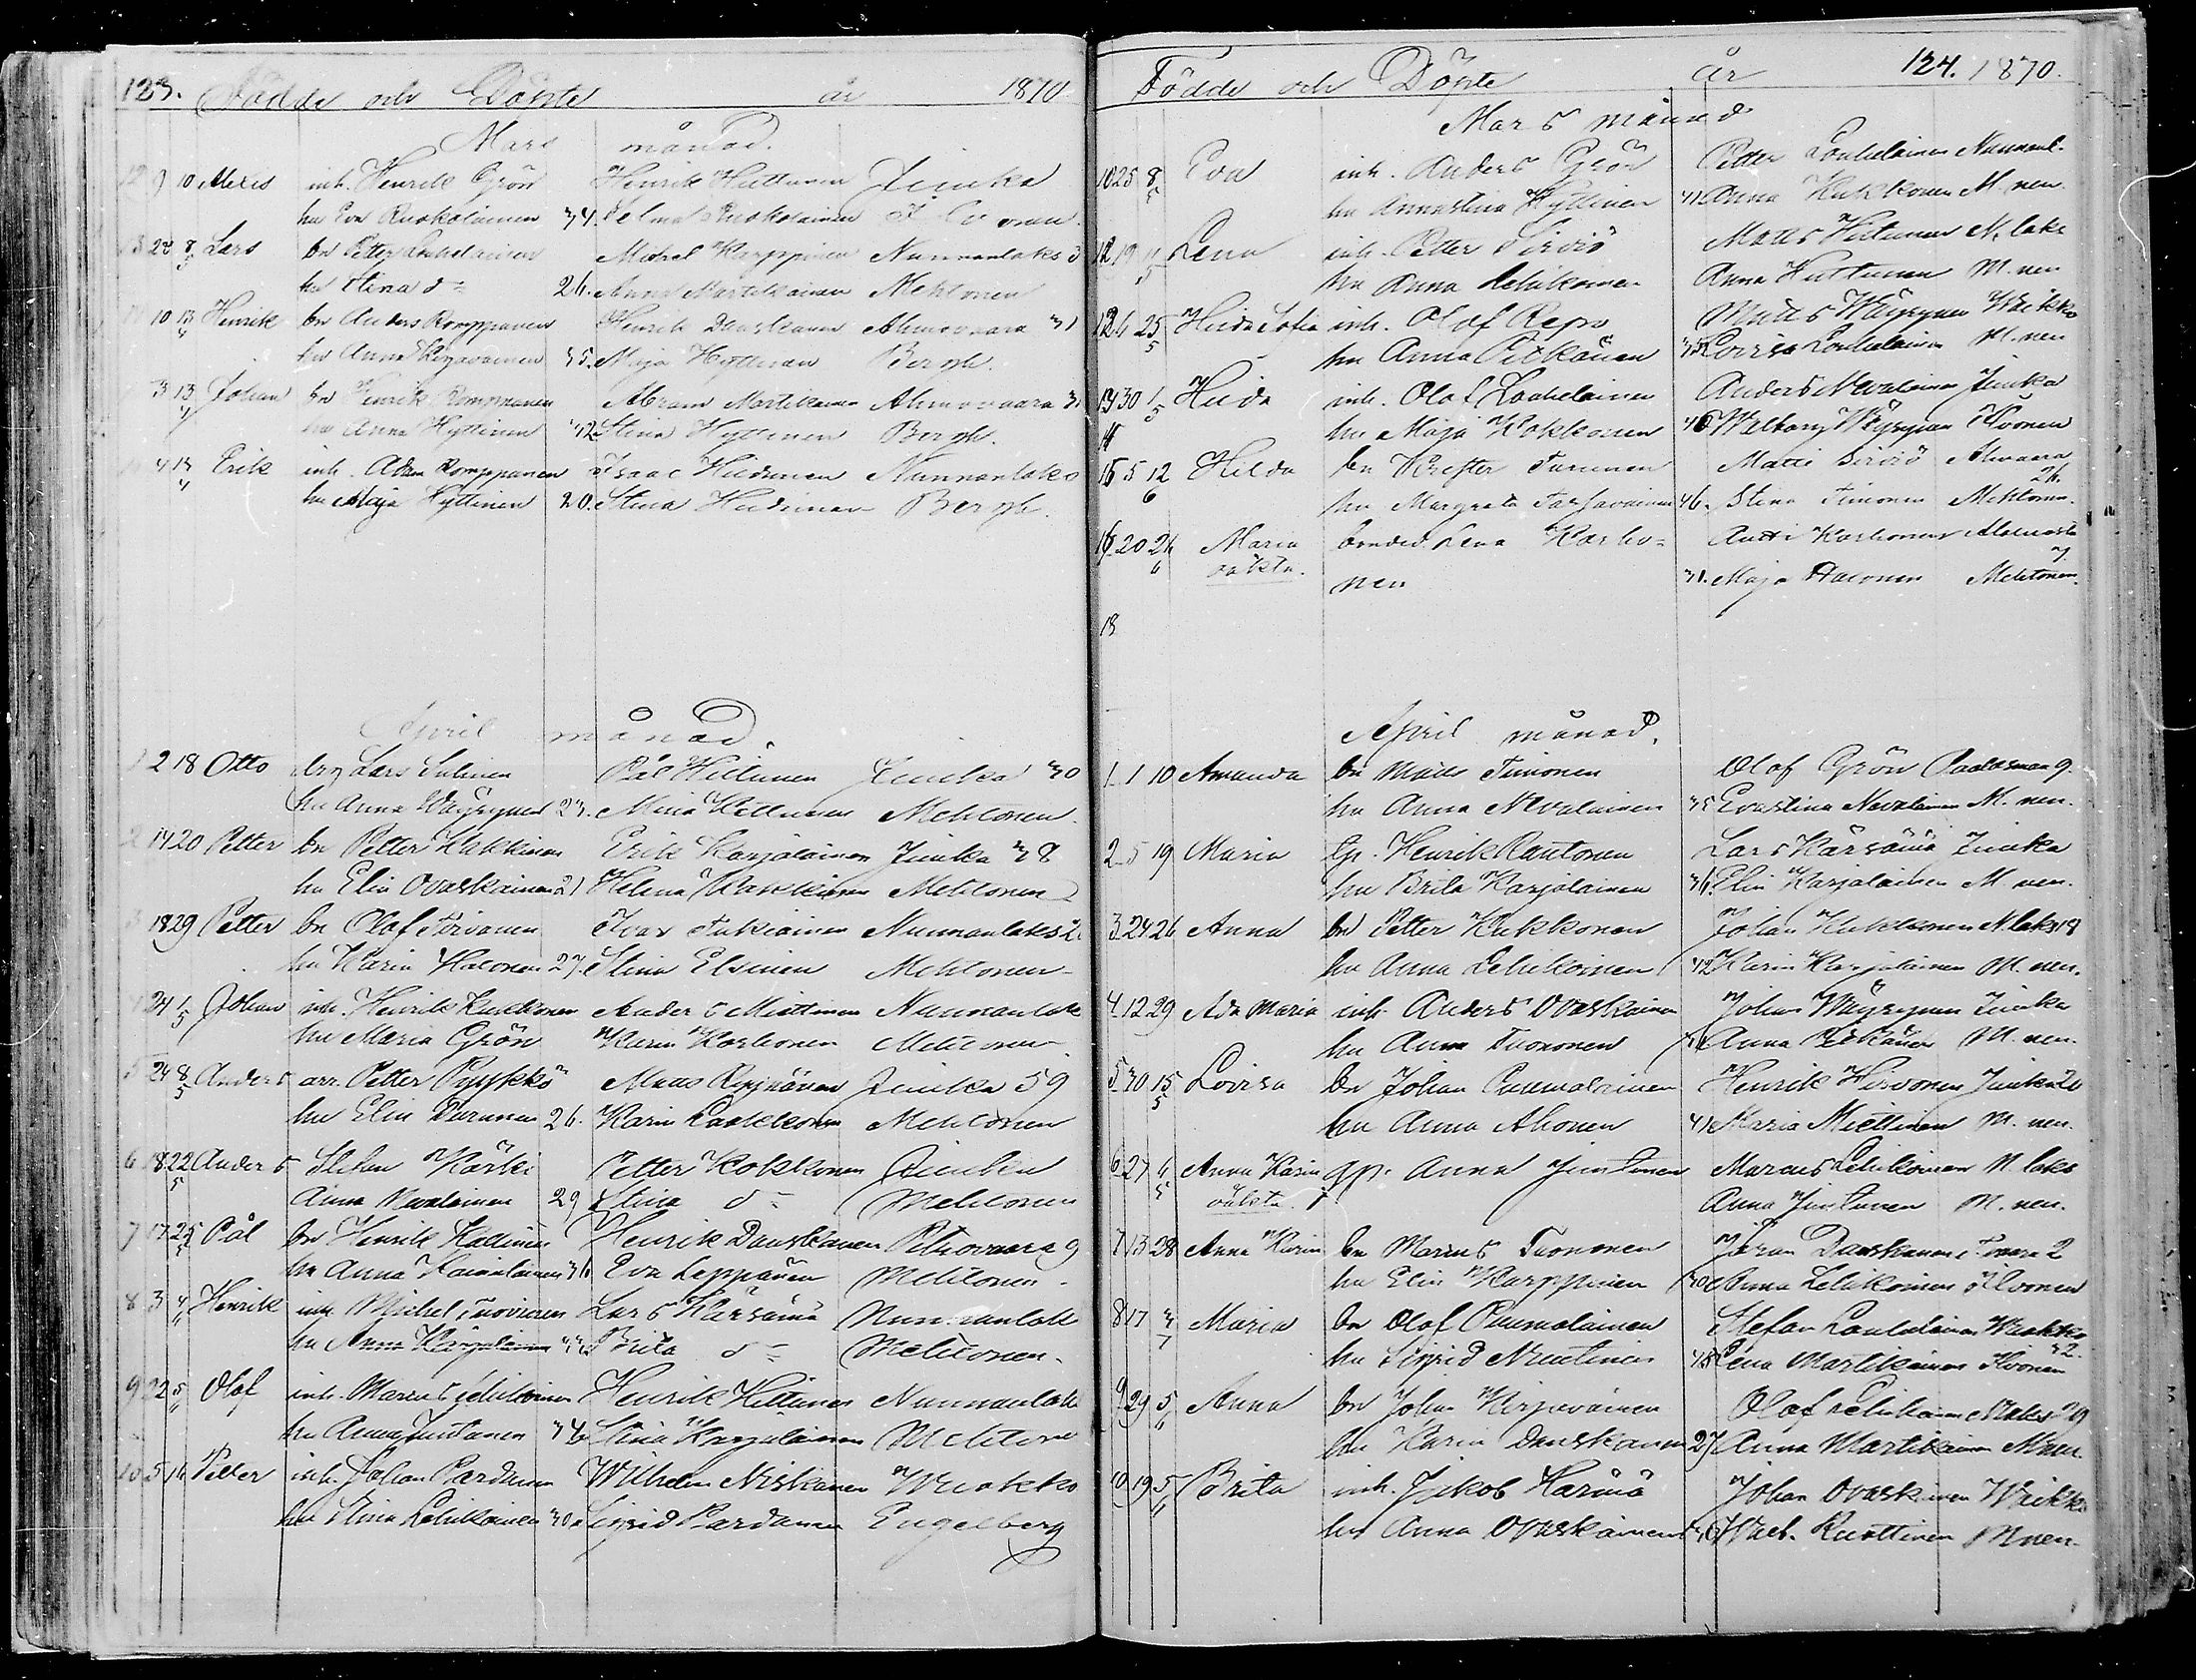 123. Födde och Döpte år 1870.
Mars månad.
12 9 10 Alexis inh. Henrik Grön Henrik Huttunen Juuka
hu Eva Ruokolainen 34. Selma Ruokolainen
13 28 8/5 Lars bn Petter Louhelainen Michel Karppinen Nunnanlaks 3
hu Stina d:o 26. Anna Martikainen Mehtonen
10 13/4 Henrik bn Anders Romppanen Henrik Danskanen Ahmovaara 31
hu Anna Kirjavainen 35. Maja Hyttinen Bergh.
3 13/4 Johan bn Henrik Romppanen Abram Martikainen Ahmovaara 31
hu Anna Hyttinen 42 Stina Hyttinen Bergh.
4 14/4 Erik inh. Adam Romppanen Isaac Hiidunen Nunnanlaks
hu Maja Hyttinen 20. Stina Bergh.
April månad.
1 2 18 Otto drg Lars Sulinen Pål Hiltunen Juuka 30
hu Anna Wäyrynen 23. Mina Hiltunen Mehtonen.
2 14 20 Petter bn Petter Kukkonen Erik Karjalainen Juuka 38
hu Elin Ovaskainen 21 Helena Mehtonen
3 18 29 Petter bn Olof Turunen Ivar Tukiainen Nunnanlaks
hu Karin Halonen 27. Stina Elsinen Mehtonen
4 24 1/5 Johan inh. Henrik Kukkonen Anders Miettinen Nunnanlaks
hu Maria Grön Karin Korhonen Mehtonen
5 24 8/5 Anders arr. Petter Pyykkö Matts Ryynänen Juuka 59
hu Elin Turunen 26. Karin Laakkonen Mehtonen
6 18 22/5 Anders Stefan Kärki Petter Kokkonen Juuka
Anna Nevalainen 29 Stina d:o Mehtonen
7 17 25/5 Pål bn Henrik Kallinen Henrik Danskanen Petrovaara 9
hu Anna Kainulainen 36 Eva Leppänen Mehtonen.
8 3 4/6 Henrik inh. Michel Tuovinen Lars Kärsämä Nunnanlaks
hu Anna Karjalainen Brita d:o Mehtonen.
9 22 5/6 Olof inh. Marcus Lehikoinen Henrik Hiltunen Nunnanlaks
hu Anna Juntunen 36 Stina Karjalainen Mehtonen
10 5 16 Petter inh. Johan Pardanen Wilhelm Niskanen Wuokko
hu Stina Lehikoinen 30. Sigrid Pardanen Engelberg
Födde och Döpte år 124. 1870.
Mars månad
10 25 8/5 Eva inh. Anders Grön Petter Louhelainen Nunnanl.
hu Annastina Hyttinen 41 Anna Kukkonen M.nen.
12 19 11/5 Lena inh. Petter Sirviö Matts Hiltunen N.laks
hu Anna Lehikoinen Anna Huttunen M.nen
12 4 25/5 Hilda Sofia inh. Olof Repo Matts Wäyrynen Waikko
hu Anna Pitkänen 35 Lovisa Louhelainen M.nen
13 30 1/5 Hilda inh. Olof Louhelainen Anders Nevalainen Juuka
14 hu Maja Kokkonen 40 Walborg Wäyrynen Ilvonen
15 5 12/6 Hilda bn Krister Turunen Matts Sirviö Ahvaara 26.
hu Margreta Tarjavainen 46. Stina Timonen Mehtonen.
16 20 26/6 Maria oäkta. bonded. Lena Korho= Antti Korhonen 7.
nen 31. Maja Halonen Mehtonen.
18
April månad.
1 1 10 Amanda bn Matts Timonen Olof Grön Paalasmaa 9.
hu Anna Nevalainen 35 Evastina Nevalainen M.nen.
2 5 19 Maria Henrik Rautonen Lars Kärsämä Juuka
hu Brita Karjalainen 36. Elin Karjalainen M.nen.
3 24 26 Anna bn Petter Kukkonen Johan Kukkonen N.laks 18
hu Anna Lehikoinen 42 Karin Karjalainen M.nen.
4 12 29 Ada Maria inh. Anders Ovaskainen Johan Wäyrynen Juuka
hu Anna Tuononen Anna Pitkänen M.nen.
5 30 15/5 Lovisa bn Johan Puumalainen Henrik Hirvonen Juuka 20
hu Anna Ahonen 41 Maria Miettinen M.nen.
6 27 4/5 Anna Karin oäkta. qp. Anna Juntunen Marcus Lehikoinen N.laks
Anna Juntunen M.nen.
7 13 28 Anna Karin bn Marcus Tuononen Göran Danskanen 2
hu Elin Karppinen 30 Anna Lehikoinen Ilvonen
8 17 3/7 Maria bn Olof Puumalainen Stefan Louhelainen Wuokko 32.
hu Sigrid Nuutinen 48 Lena Martikainen Ilvonen
9 29 5/6 Anna bn Johan Kirjavainen Olof Lehikoinen N.laks 29
hu Karin Danskanen 27 Anna Martikainen M.nen.
10 19 5/6 Brita inh. Jakob Kärnä Johan Ovaskainen Waikko
hu Anna Ovaskainen Walb. Ruottinen M.nen.